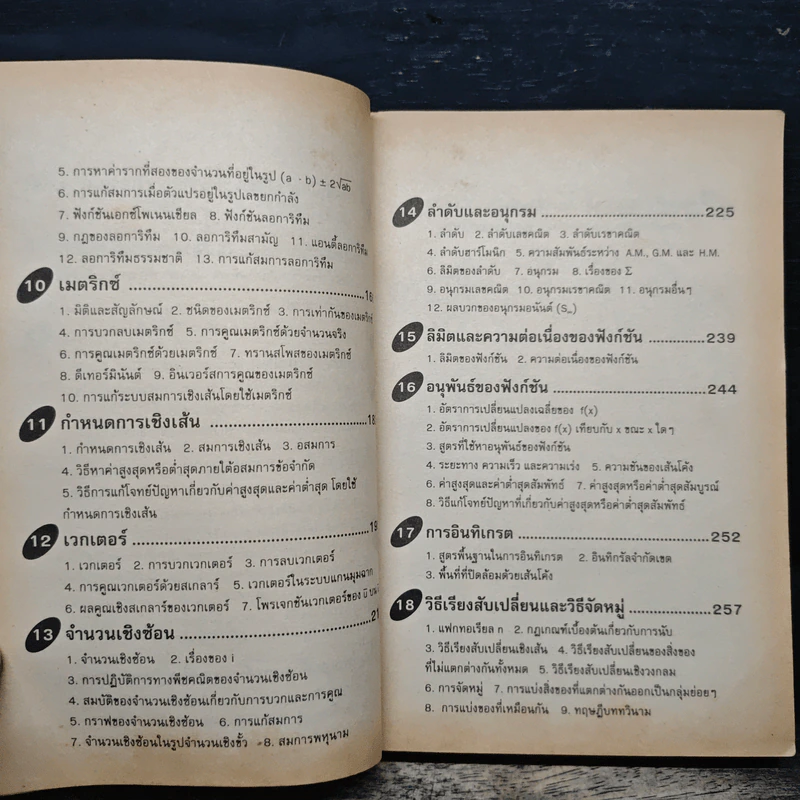 5. การหาค่ารากที่สองของจำนวนที่อยู่ในรูป (a - b) ± 2√ab
6. การแก้สมการเมื่อตัวแปรอยู่ในรูปเลขยกกำลัง
7. ฟังก์ชันเอกซ์โพเนนเชียล 8. ฟังก์ชันลอการิทึม
9. กฎของลอการิทึม 10. ลอการิทึมสามัญ 11. แอนตี้ลอการิทึม
12. ลอการิทึมธรรมชาติ 13. การแก้สมการลอการิทึม
10 เมตริกซ์
1. มิติและสัญลักษณ์ 2. ชนิดของเมตริกซ์ 3. การเท่ากันของเมตริกซ์
4. การบวกลบเมตริกซ์ 5. การคูณเมตริกซ์ด้วยจำนวนจริง
6. การคูณเมตริกซ์ด้วยเมตริกซ์ 7. ทรานสโพสของเมตริกซ์
8. ดีเทอร์มินันต์ 9. อินเวอร์สการคูณของเมตริกซ์
10. การแก้ระบบสมการเชิงเส้นโดยใช้เมตริกซ์
11 กำหนดการเชิงเส้น
1. กำหนดการเชิงเส้น 2. สมการเชิงเส้น 3. อสมการ
4. วิธีหาค่าสูงสุดหรือต่ำสุดภายใต้อสมการข้อจำกัด
5. วิธีการแก้โจทย์ปัญหาเกี่ยวกับค่าสูงสุดและค่าต่ำสุด โดยใช้
กำหนดการเชิงเส้น
12 เวกเตอร์
1. เวกเตอร์ 2. การบวกเวกเตอร์ 3. การลบเวกเตอร์
4. การคูณเวกเตอร์ด้วยสเกลาร์ 5. เวกเตอร์ในระบบแกนมุมฉาก
6. ผลคูณเชิงสเกลาร์ของเวกเตอร์ 7. โพรเจกชันเวกเตอร์ของ
13 จำนวนเชิงซ้อน
1. จำนวนเชิงซ้อน 2. เรื่องของ i
3. การปฏิบัติการทางพีชคณิตของจำนวนเชิงซ้อน
4. สมบัติของจำนวนเชิงซ้อนเกี่ยวกับการบวกและการคูณ
5. กราฟของจำนวนเชิงซ้อน 6. การแก้สมการ
7. จำนวนเชิงซ้อนในรูปจำนวนเชิงขั้ว 8. สมการพหุนาม
14 ลำดับและอนุกรม ........ 225
1. ลำดับ 2. ลำดับเลขคณิต 3. ลำดับเรขาคณิต
4. ลำดับฮาร์โมนิก 5. ความสัมพันธ์ระหว่าง A.M., G.M. และ H.M.
6. ลิมิตของลำดับ 7. อนุกรม 8. เรื่องของ Σ
9. อนุกรมเลขคณิต 10. อนุกรมเรขาคณิต 11. อนุกรมอื่นๆ
12. ผลบวกของอนุกรมอนันต์ (S∞)
15 ลิมิตและความต่อเนื่องของฟังก์ชัน ........ 239
1. ลิมิตของฟังก์ชัน 2. ความต่อเนื่องของฟังก์ชัน
16 อนุพันธ์ของฟังก์ชัน ........ 244
1. อัตราการเปลี่ยนแปลงเฉลี่ยของ f(x)
2. อัตราการเปลี่ยนแปลงของ f(x) เทียบกับ x ขณะ x ใดๆ
3. สูตรที่ใช้หาอนุพันธ์ของฟังก์ชัน
4. ระยะทาง ความเร็ว และความเร่ง 5. ความชันของเส้นโค้ง
6. ค่าสูงสุดและค่าต่ำสุดสัมพัทธ์ 7. ค่าสูงสุดหรือค่าต่ำสุดสมบูรณ์
8. วิธีแก้โจทย์ปัญหาที่เกี่ยวกับค่าสูงสุดหรือค่าต่ำสุดสัมพัทธ์
17 การอินทิเกรต ........ 252
1. สูตรพื้นฐานในการอินทิเกรต 2. อินทิกรัลจำกัดเขต
3. พื้นที่ที่ปิดล้อมด้วยเส้นโค้ง
18 วิธีเรียงสับเปลี่ยนและวิธีจัดหมู่ ........ 257
1. แฟกทอเรียล n 2. กฎเกณฑ์เบื้องต้นเกี่ยวกับการนับ
3. วิธีเรียงสับเปลี่ยนเชิงเส้น 4. วิธีเรียงสับเปลี่ยนของสิ่งของ
ที่ไม่แตกต่างกันทั้งหมด 5. วิธีเรียงสับเปลี่ยนเชิงวงกลม
6. การจัดหมู่ 7. การแบ่งสิ่งของที่แตกต่างกันออกเป็นกลุ่มย่อยๆ
8. การแบ่งของที่เหมือนกัน 9. ทฤษฎีบททวินาม